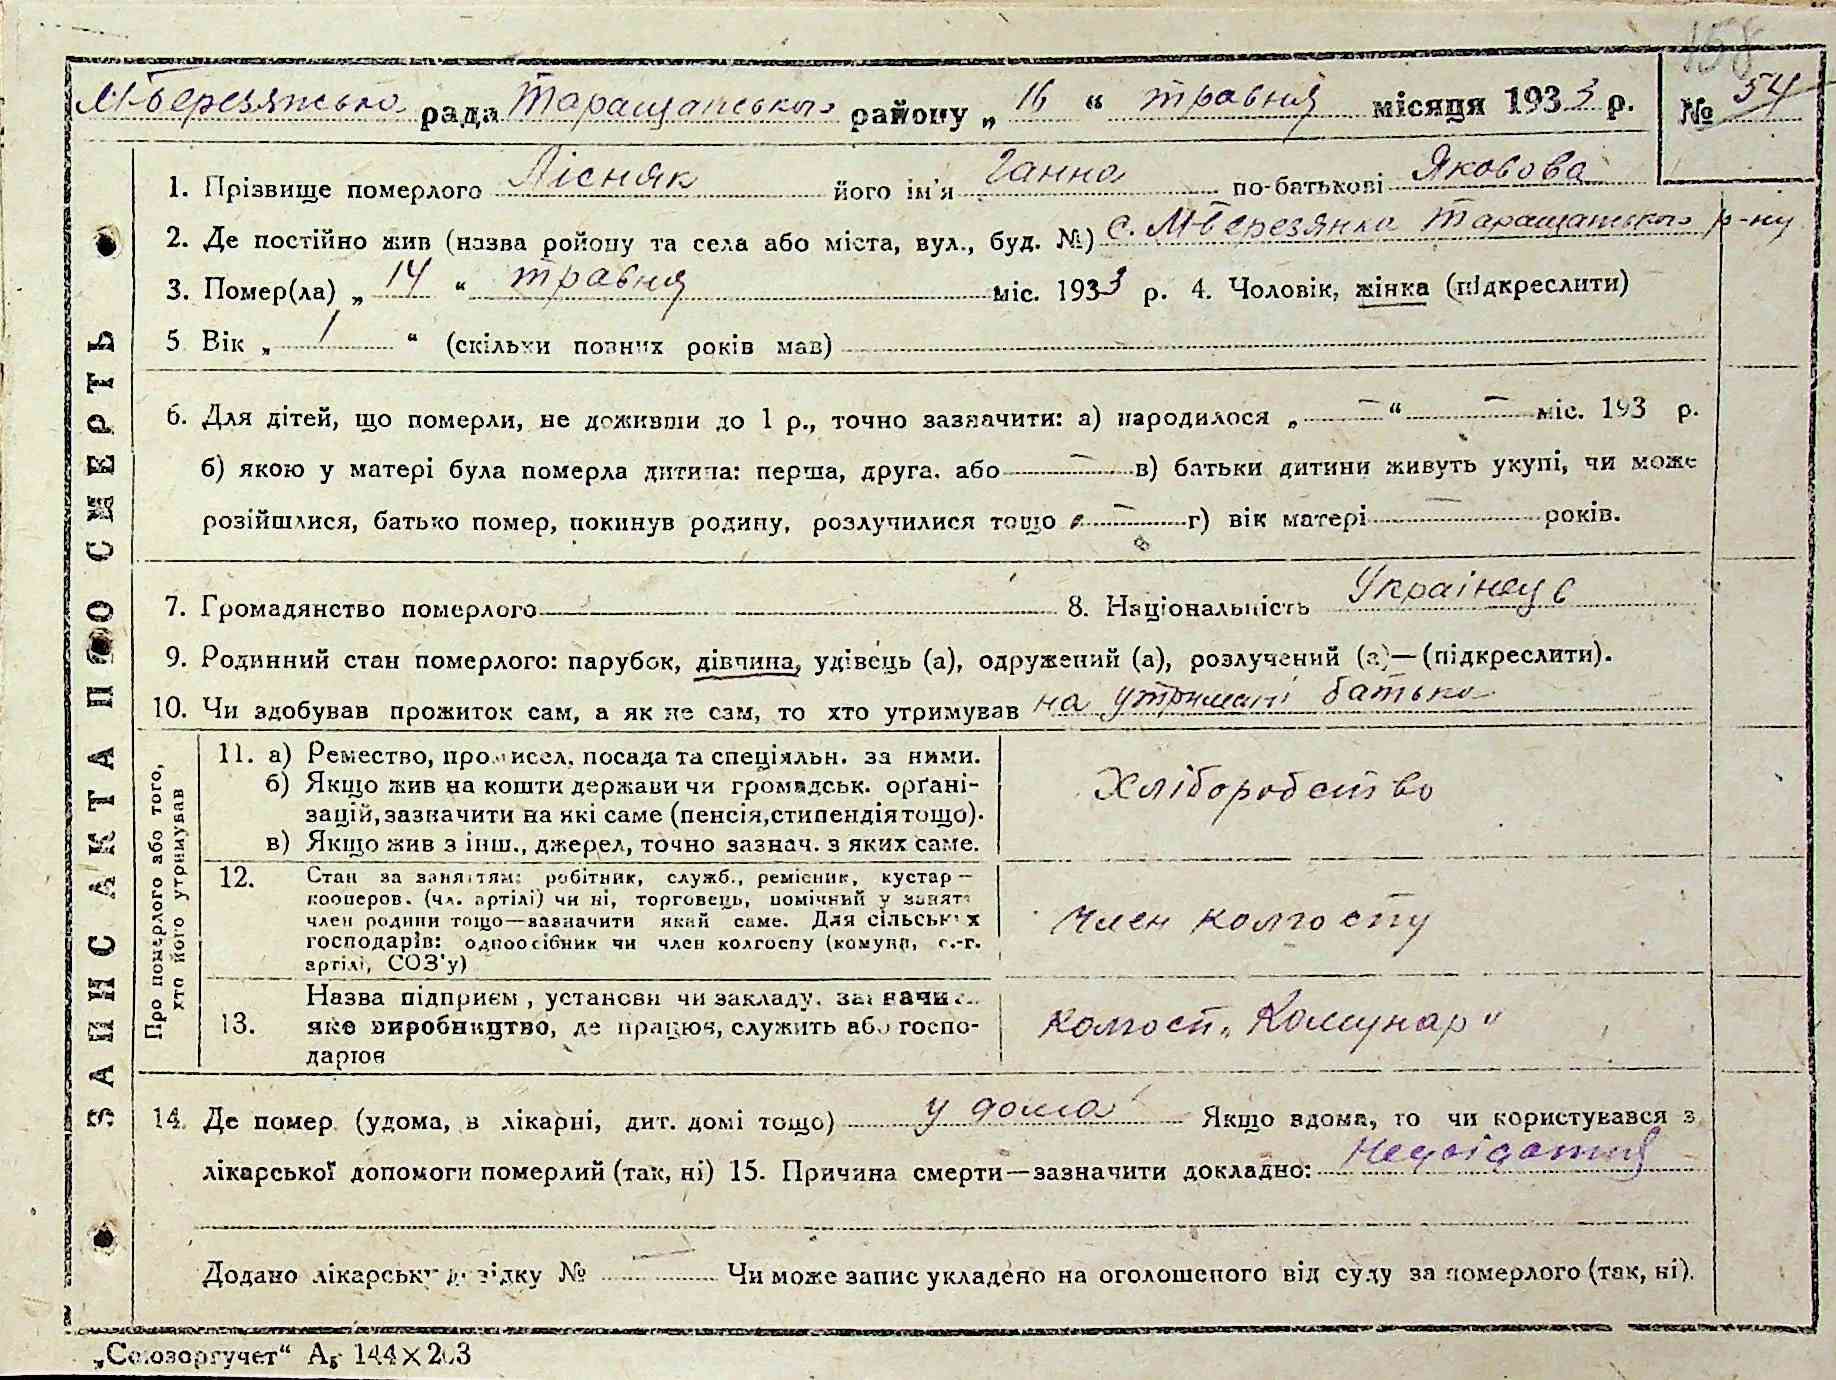 158
М-Березянська рада Таращанського району „ 16 “ травня місяця 1933 р. № 54
ЗАПИС АКТА ПРО СМЕРТЬ
1. Прізвище померлого Лісняк його ім'я Ганна по-батькові Яковова
2. Де постійно жив (назва району та села або міста, вул., буд. №) с. М-Березянка Таращанського р-ну
3. Помер(ла) „ 14 “ травня міс. 1933 р. 4. Чоловік, жінка (підкреслити)
5 Вік „ 1 “ (скільки повних років мав)
6. Для дітей, що померли, не доживши до 1 р., точно зазначити: а) народилося „ — “ — міс. 193 р.
б) якою у матері була померла дитина: перша, друга. або — в) батьки дитини живуть укупі, чи може
розійшлися, батько помер, покинув родину, розлучилися тощо — г) вік матері — років.
7. Громадянство померлого — 8. Національність Українець
9. Родинний стан померлого: парубок, дівчина, удівець (а), одружений (а), розлучений (а)—(підкреслити).
10. Чи здобував прожиток сам, а як не сам, то хто утримував на утримані батька
Про померлого або того,
хто його утримував
11. а) Ремество, промисел, посада та спеціяльн. за ними.
б) Якщо жив на кошти держави чи громадськ. орґані-
зацій, зазначити на які саме (пенсія, стипендія тощо).
в) Якщо жив з інш., джерел, точно зазнач. з яких саме.
Хліборобство
12. Стан за заняттям: робітник, служб., ремісник, кустар —
кооперов. (чл. артілі) чи ні, торговець, помічний у занятт
член родини тощо—зазначити який саме. Для сільських
господарів: одноосібник чи член колгоспу (комуни, с.-г.
артілі, СОЗ'у)
Член колгоспу
13. Назва підприєм , установи чи закладу. зазначити
яке виробництво, де працює, служить або госпо-
дарює
Колгосп „Комунар“
14. Де помер (удома, в лікарні, дит. домі тощо) у дома Якщо вдома, то чи користувався з
лікарської допомоги померлий (так, ні) 15. Причина смерти—зазначити докладно:
Додано лікарську довідку № — Чи може запис укладено на оголошеного від суду за померлого (так, ні).
„Союзоргучет“ А₅ 144×203